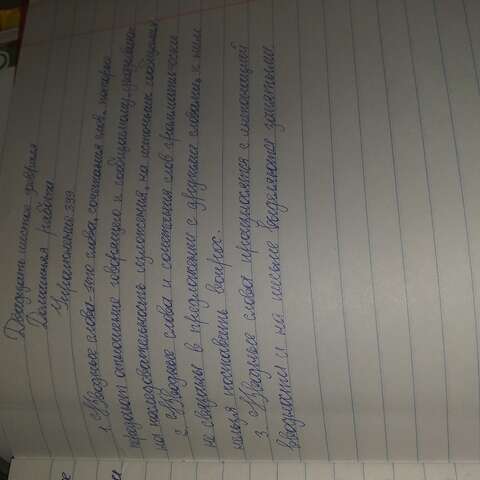 Двадцать шестое февраля
Домашняя работа
Упражнение 399
1. Вводные слова-это слова, сочетания слов, которые
передают отношение говорящего к сообщаемому, указывают
на последовательность изложения, на источник сообщения
2. Вводные слова и сочетания слов грамматически
не связаны в предложении с другими словами, к ним
нельзя поставить вопрос.
3. Вводные слова произносятся с интонацией
вводности и на письме выделяются запятыми.